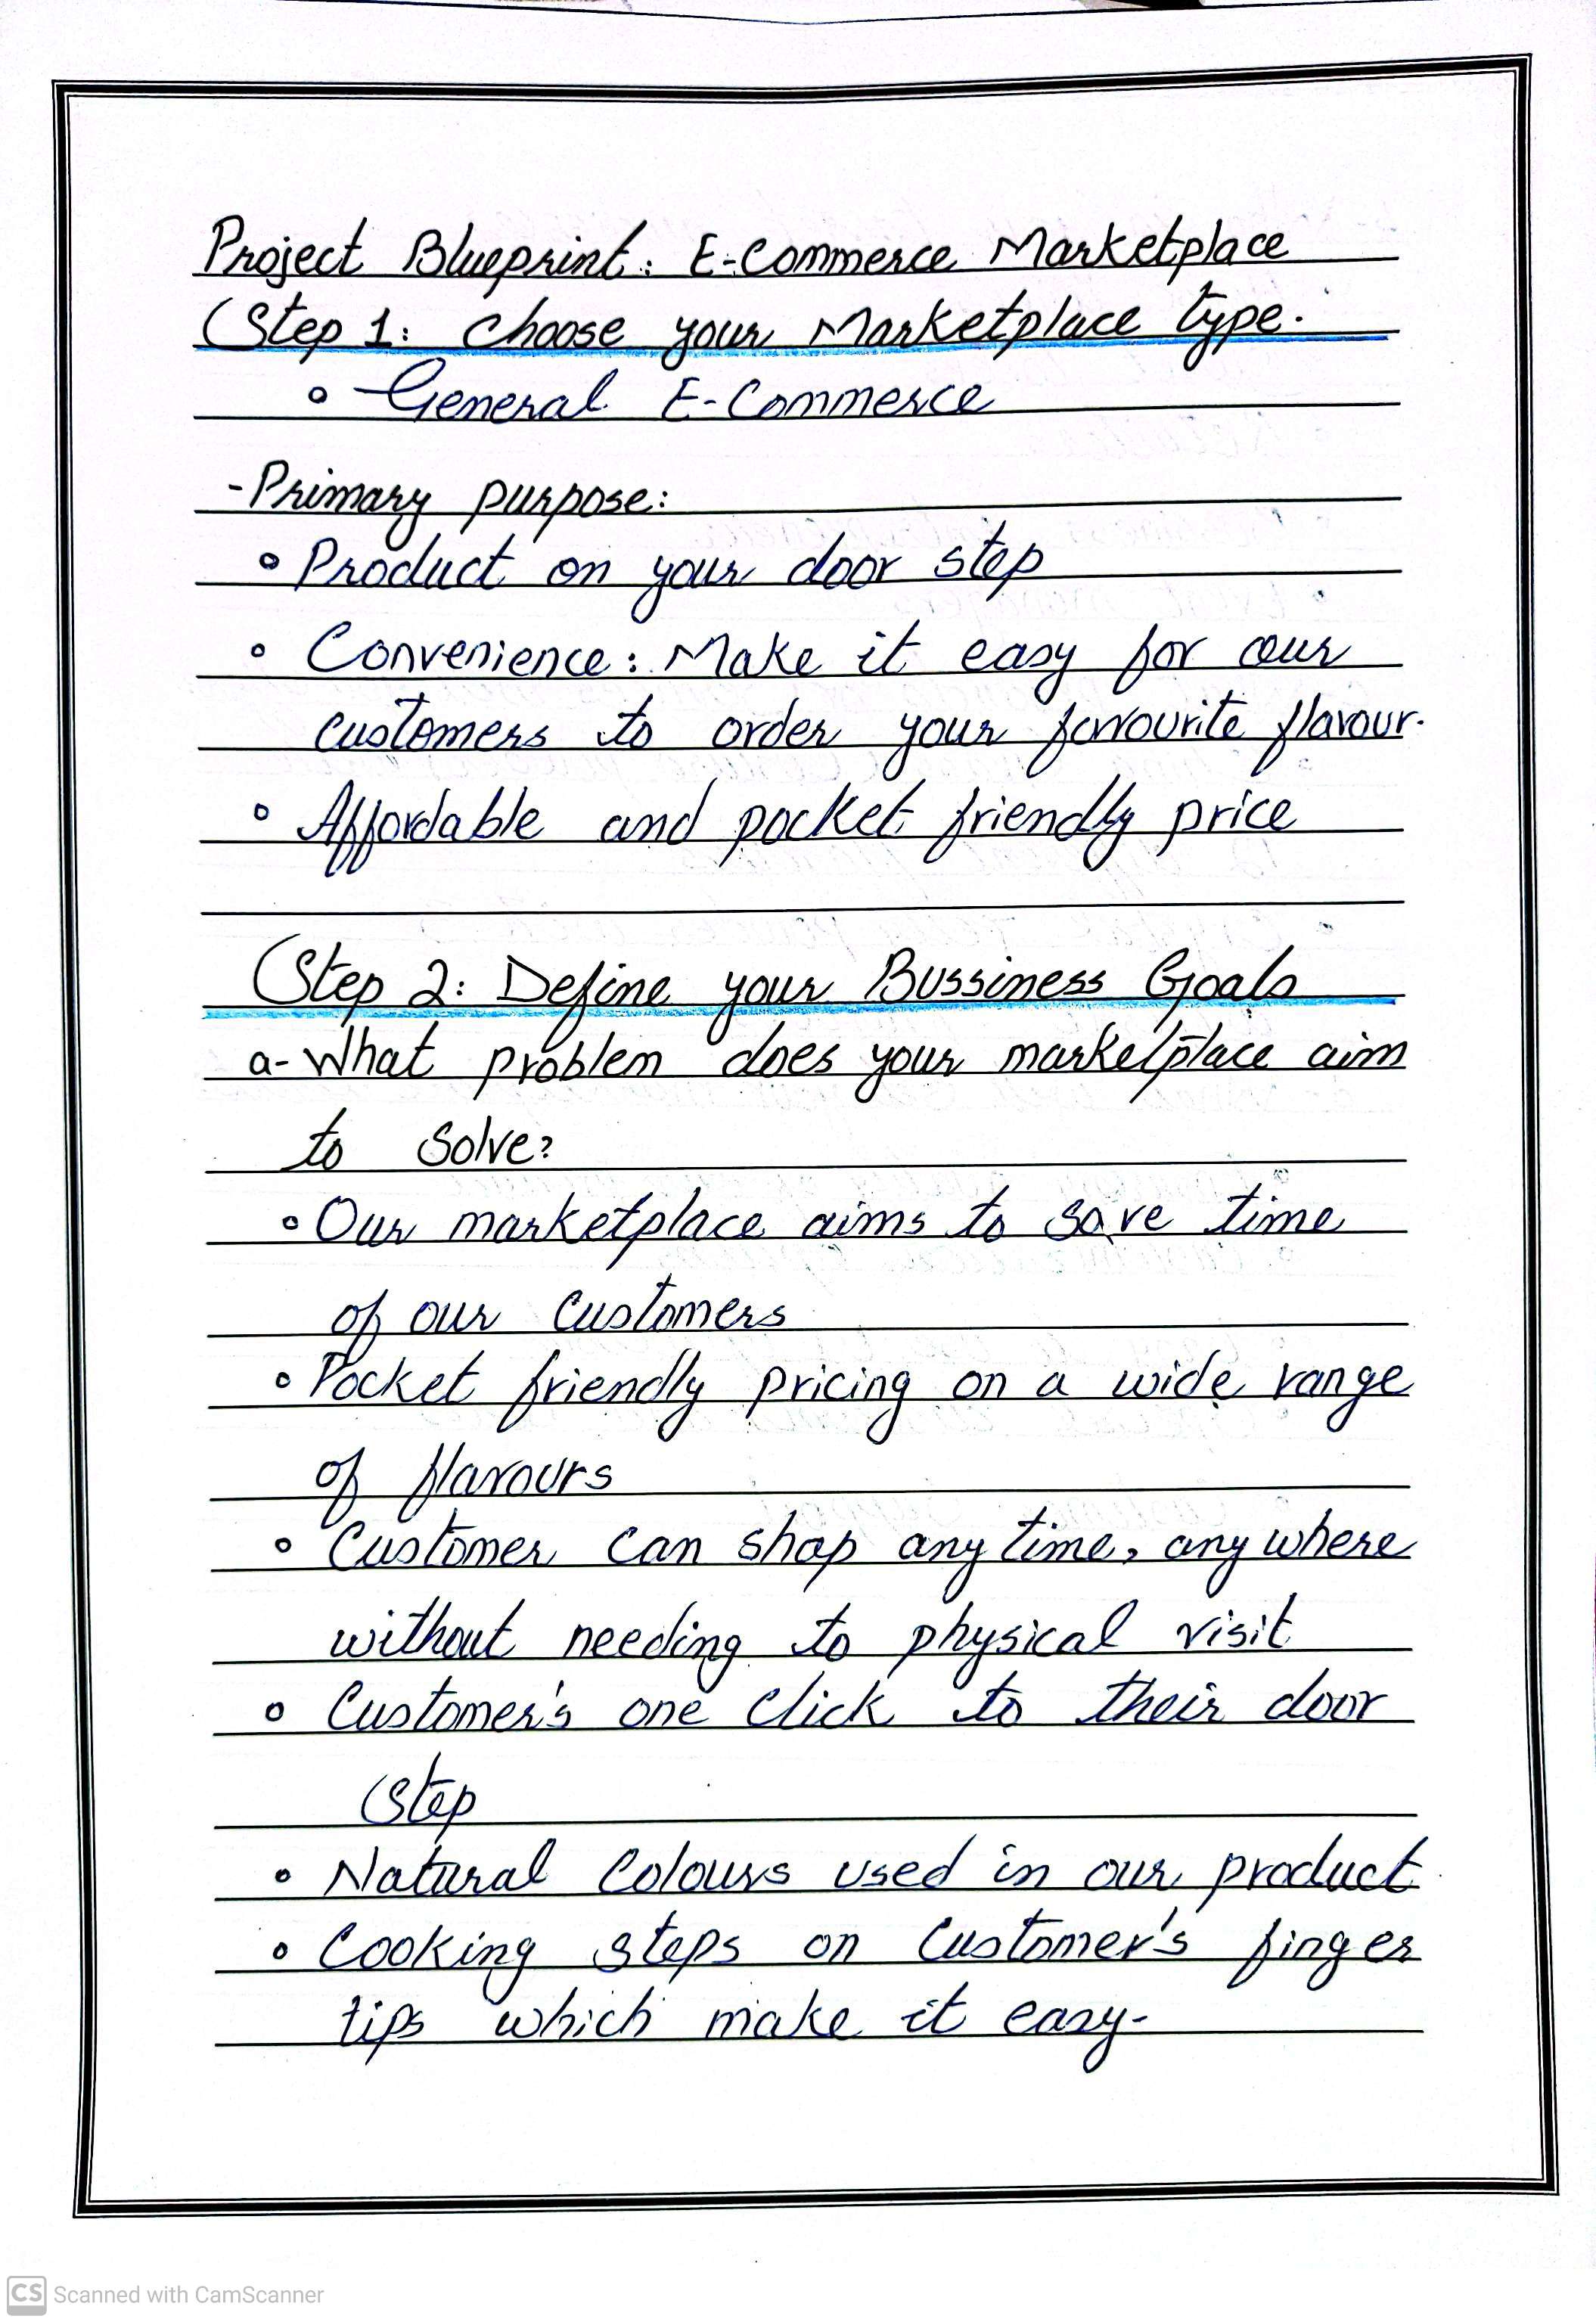 Project Blueprint: E-Commerce Marketplace
Step 1: Choose your Marketplace type.
• General E-Commerce
- Primary purpose:
• Product on your door step
• Convenience: Make it easy for our
customers to order your favourite flavour.
• Affordable and pocket friendly price
Step 2: Define your Bussiness Goals
a- What problem does your marketplace aim
to solve?
• Our marketplace aims to save time
of our customers
• Pocket friendly pricing on a wide range
of flavours
• Customer can shop any time, any where
without needing to physical visit
• Customer's one click to their door
step
• Natural colours used in our product
• Cooking steps on customer's finger
tips which make it easy-
CS Scanned with CamScanner